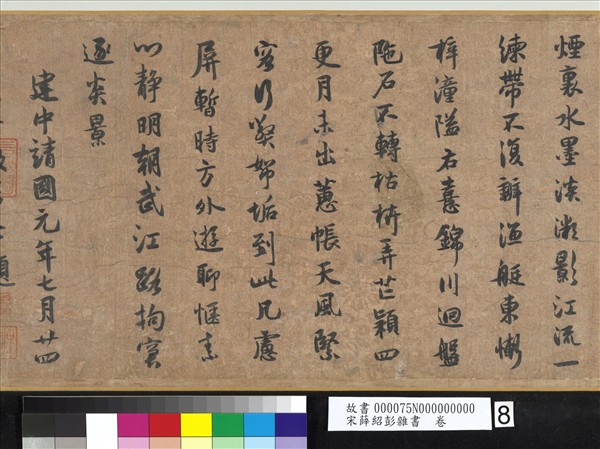 煙裏水墨淡激影江流一
練帶不復辨漁艇東慚
梓潼隘右憙錦川迴盤
陁石不轉枯枿弄芒穎四
更月未出蕙帳天風緊
容行𡙇垢到此凡慮
屏暫時方外遊聊愜素
心靜明朝武江路拘窘
逐炎景
建中靖國元年七月廿四
故書 000075N000000000
宋薛紹彭雜書 卷
8